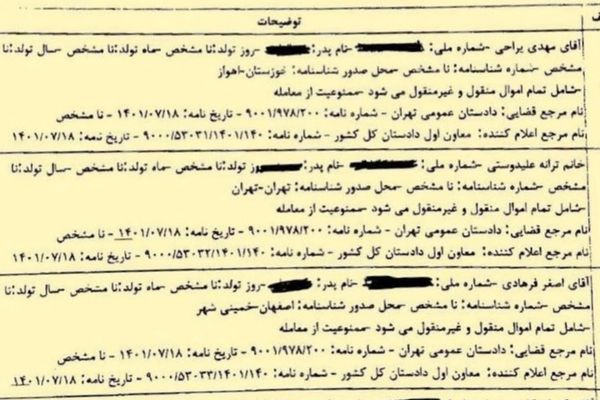 توضیحات
آقای مهدی یراحی -شماره ملی: -نام پدر: -روز تولد:نا مشخص -ماه تولد:نا مشخص -سال تولد:نا
مشخص -شماره شناسنامه: نا مشخص -محل صدور شناسنامه: خوزستان-اهواز
-شامل تمام اموال منقول و غیرمنقول می شود -ممنوعیت از معامله
نام مرجع قضایی: دادستان عمومی تهران - شماره نامه: ۹۰۰۱/۹۷۸/۲۰۰ - تاریخ نامه: ۱۴۰۱/۰۷/۱۸ - نا مشخص
نام مرجع اعلام کننده: معاون اول دادستان کل کشور - شماره نامه: ۹۰۰۰/۵۳۰۳۱/۱۴۰۱/۱۴۰ - تاریخ نامه: ۱۴۰۱/۰۷/۱۸
خانم ترانه علیدوستی -شماره ملی: -نام پدر: روز تولد:نا مشخص -ماه تولد:نا مشخص -سال تولد:نا
مشخص -شماره شناسنامه: نا مشخص -محل صدور شناسنامه: تهران-تهران
-شامل تمام اموال منقول و غیرمنقول می شود -ممنوعیت از معامله
نام مرجع قضایی: دادستان عمومی تهران - شماره نامه: ۹۰۰۱/۹۷۸/۲۰۰ - تاریخ نامه: ۱۴۰۱/۰۷/۱۸ - نا مشخص
نام مرجع اعلام کننده: معاون اول دادستان کل کشور - شماره نامه: ۹۰۰۰/۵۳۰۳۲/۱۴۰۱/۱۴۰ - تاریخ نامه: ۱۴۰۱/۰۷/۱۸
آقای اصغر فرهادی -شماره ملی: - نام پدر: -روز تولد:نا مشخص -ماه تولد:نا مشخص -سال تولد:نا
مشخص -شماره شناسنامه: نا مشخص -محل صدور شناسنامه: اصفهان-خمینی شهر
-شامل تمام اموال منقول و غیرمنقول می شود -ممنوعیت از معامله
نام مرجع قضایی: دادستان عمومی تهران - شماره نامه: ۹۰۰۱/۹۷۸/۲۰۰ - تاریخ نامه: ۱۴۰۱/۰۷/۱۸ - نا مشخص
نام مرجع اعلام کننده: معاون اول دادستان کل کشور - شماره نامه: ۹۰۰۰/۵۳۰۳۳/۱۴۰۱/۱۴۰ - تاریخ نامه: ۱۴۰۱/۰۷/۱۸